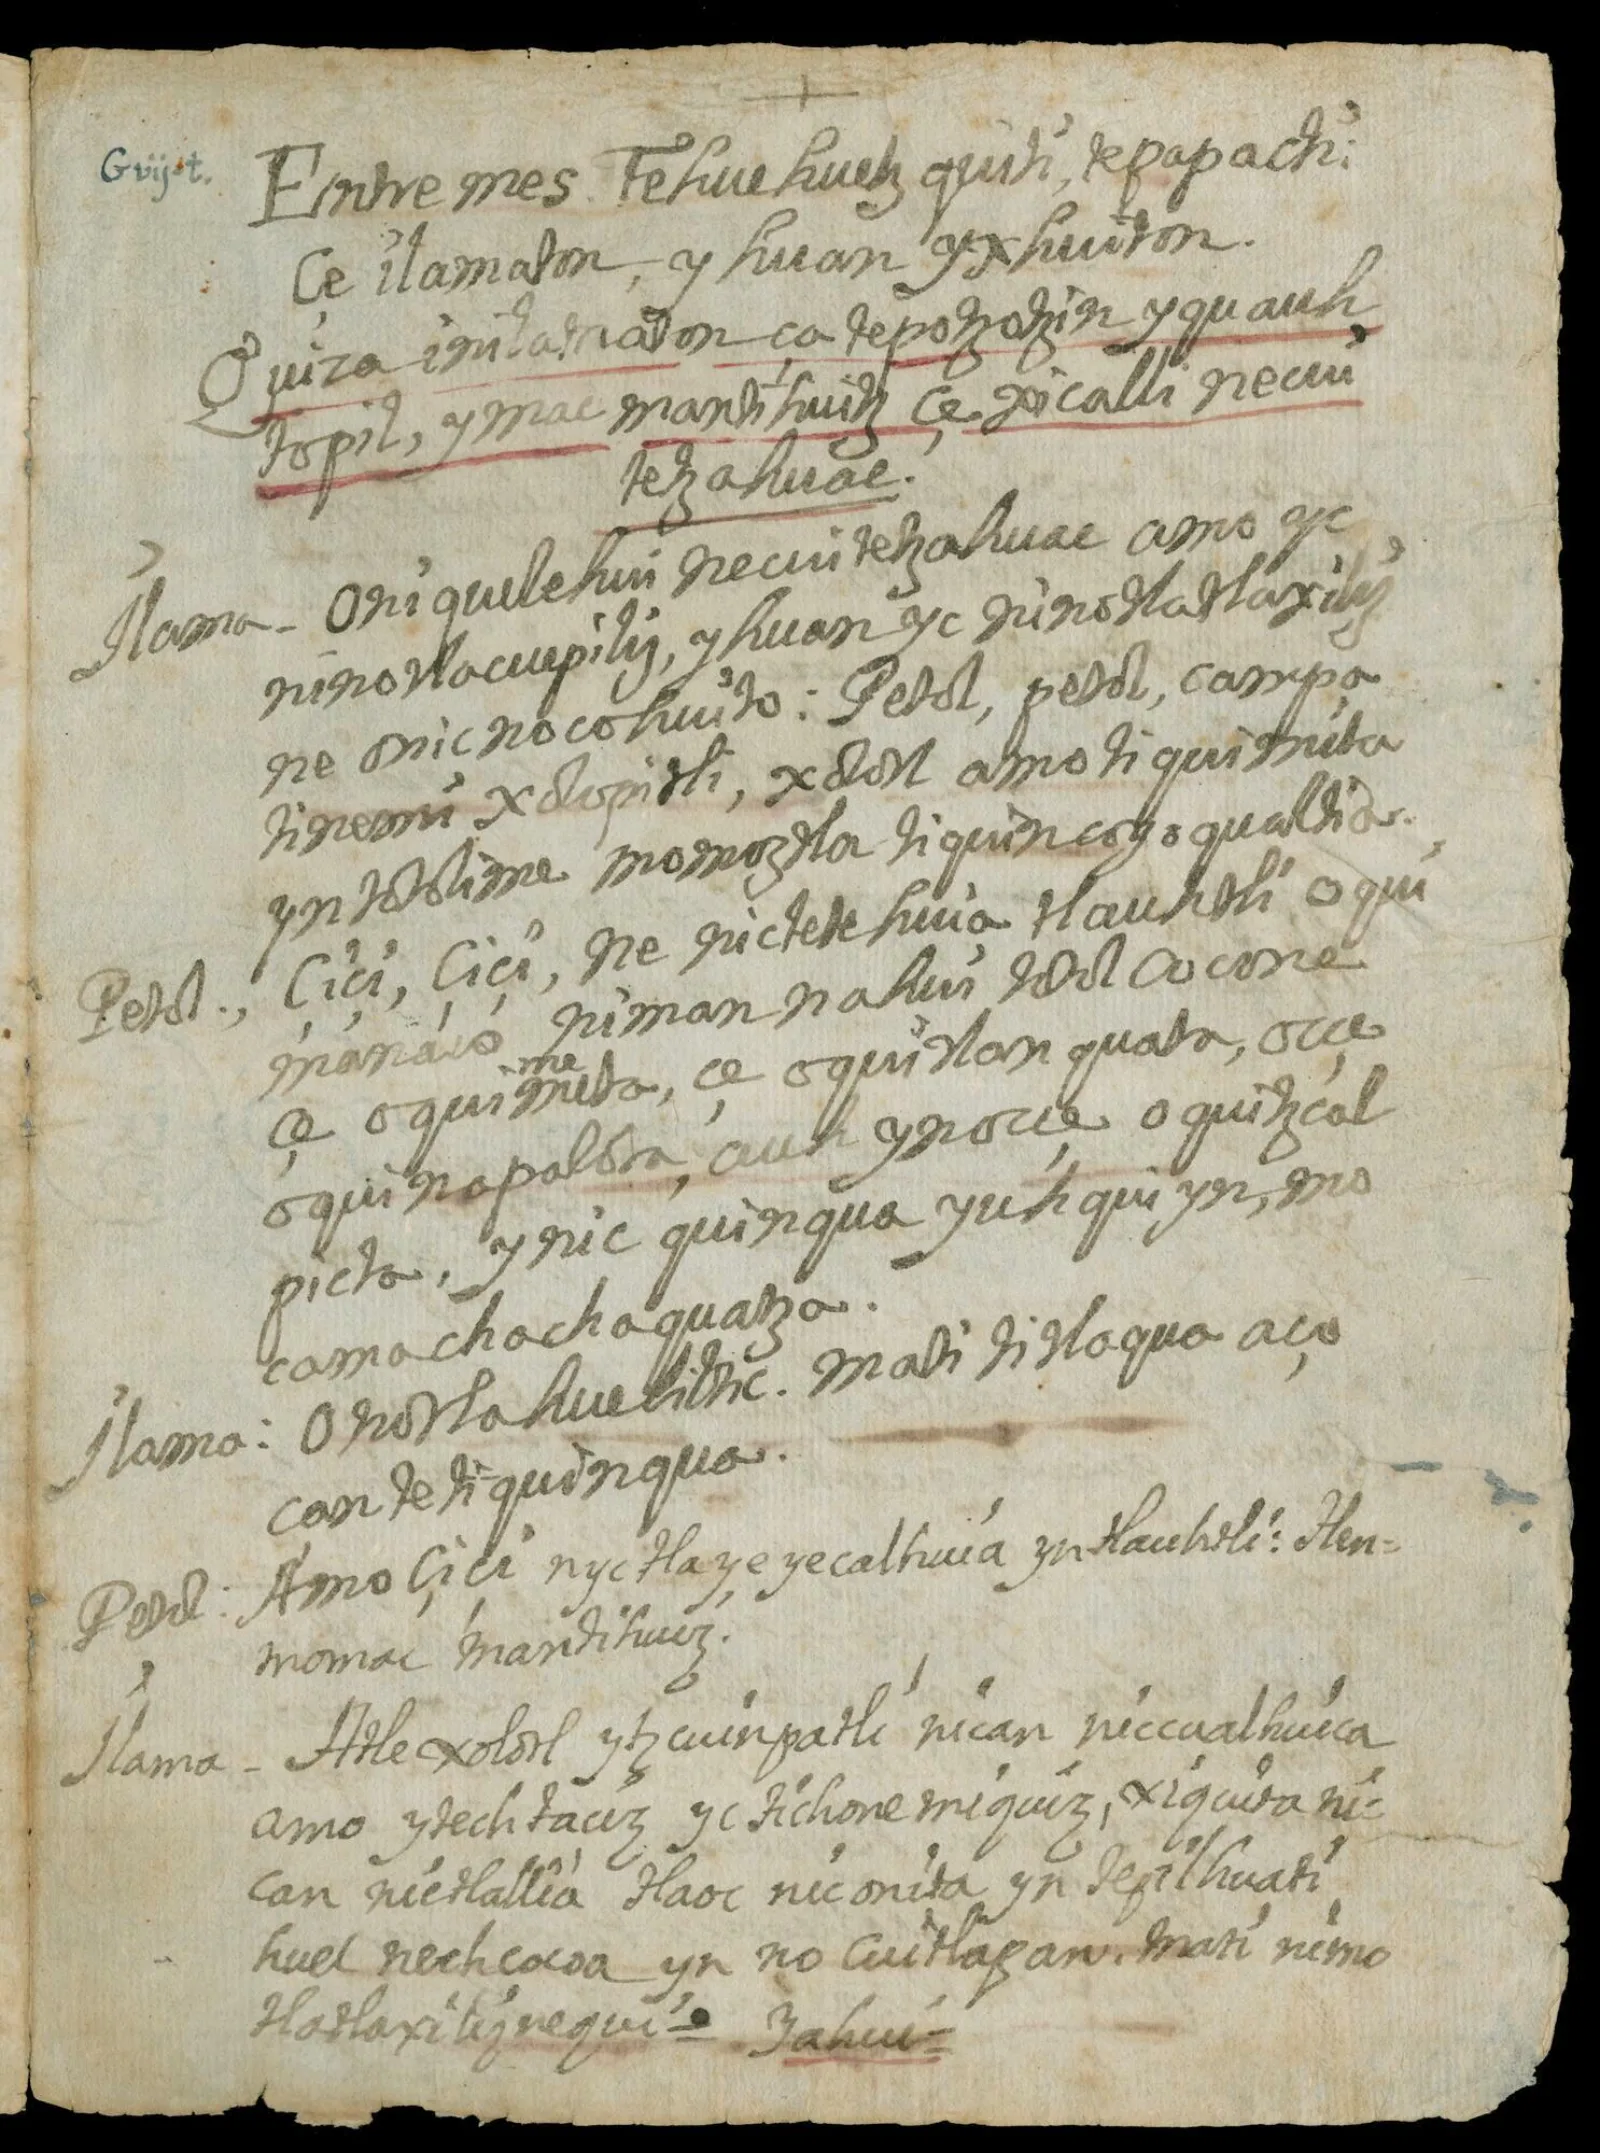 Entremes. Tehuehuetzquiti, tepapacti:
Çe ilamaton, yhuan yxhuiton.
Quiza inilamaton ça tepotzotzin yquauh
topil, ymac mantihuitz çe xicalli necui
tetzahuac.
Ilama - Oniquelehui necuitetzahuac amo yc
ninotlacuepiliz, yhuan yc ninotlatlaxiliz
ne onicnocohuito: Petol, petol, campa
tinemi xolopitli, xolotl amo tiquimita
yn totolime momoztla tiquincoyoqualtia.
Petol., Çiçi, Çiçi, ne nictetehuia tlauhtli oqui
manaco niman nahui totol cocone
çe oquimmeita, çe oquitlanquata, occe
oquinapalota, auh ynocce oquitzcal
picta, ynic quinqua yuhqui yn, mo
camachachaquatza.
Ilama: Onotlahueliltic. mati titlaqua aço
can te tiquinqua.
Petol: Amo Çiçi nyctlayeyecalhuia yn tlauhtli: tlen=
momac mantihuiz.
Ilama - Atle xolotl ytzcuinpatli nican niccualhuica
amo ytech taciz yc tichonemiquiz, xiquita ni=
can nictlallia tlaoc niconita yn tepilhuati
huel nechcocoa yn no cuitlapan. mati nimo
tlatlaxiliznequi = Yahui =